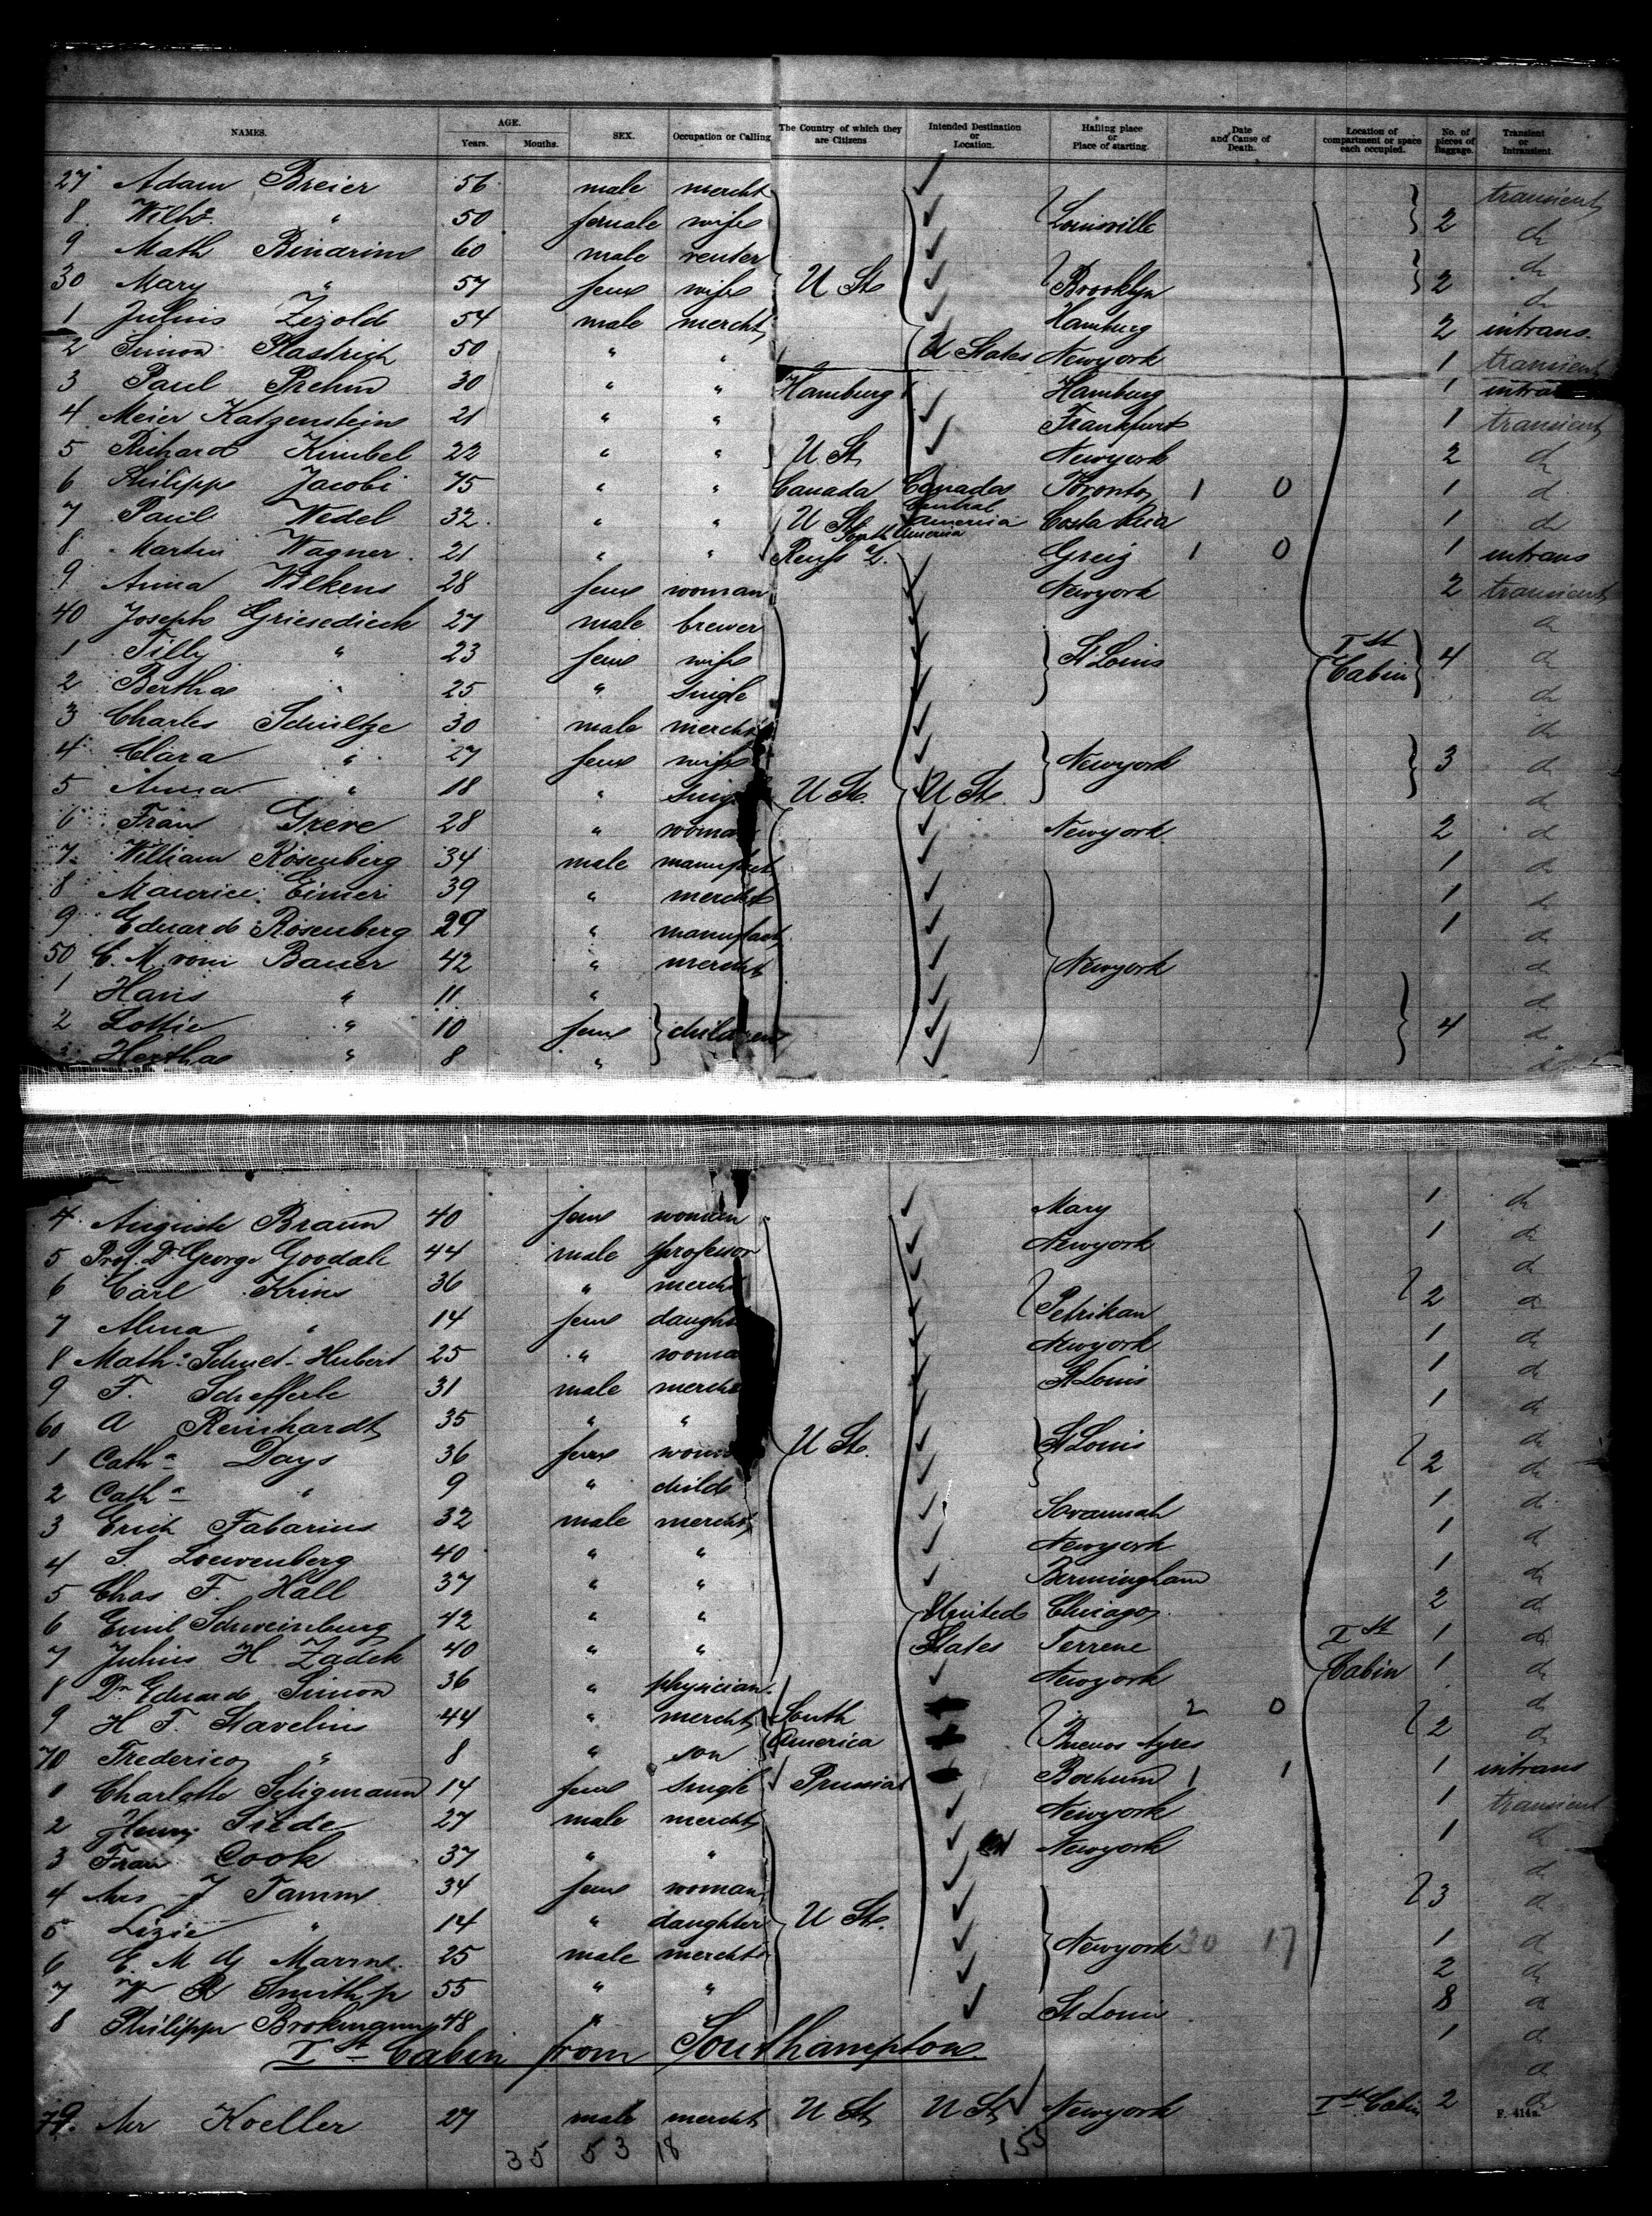 NAMES. AGE. Years. Months. SEX. Occupation or Calling The Country of which they are Citizens Intended Destination or Location. Hailing place or Place of starting. Date and Cause of Death. Location of compartment or space each occupied. No. of pieces of Baggage. Transient or Intransient.
27 Adam Breier 56 male mercht transient
8 Wilhe " 50 female wife Louisville 2 do
9 Math Binarim 60 male renter do
30 Mary " 57 fem wife U St. Brooklyn 2 do
1 Julius Zezold 54 male mercht Hamburg 2 intrans.
2 Simon Plastrich 50 " " U States Newyork 1 transient
3 Paul Prehm 30 " " Hamburg Hamburg 1 intra
4 Meier Katzenstein 21 " " Frankfurt 1 transient
5 Richard Kimbel 22 " " U. St. Newyork 2 do
6 Philipp Jacobi 75 " " Canada Canada Toronto 1 0 1 do
7 Paul Wedel 32 " " U St. Central America Costa Rica 1 do
South America
8 Martin Wagner 21 " " Reuss ä. L. Greiz 1 0 1 intrans
9 Anna Wilkens 28 fem woman Newyork 2 transient
40 Joseph Griesedieck 27 male brewer do
1 Tilly " 23 fem wife St Louis Ist Cabin 4 do
2 Bertha " 25 " single do
3 Charles Schultze 30 male mercht do
4 Clara " 27 fem wife Newyork 3 do
5 Anna " 18 " sing U St. U St. do
6 Frau Greve 28 " woman Newyork 2 do
7 William Rosenberg 34 male manufact 1 do
8 Maurice Eimer 39 " mercht 1 do
9 Eduard Rosenberg 29 " manufact 1 do
50 C. M. vom Bauer 42 " mercht Newyork do
1 Hans " 11 " do
2 Lottie " 10 fem children 4 do
3 Hertha " 8 " do
4 Auguste Braun 40 fem woman Mary 1 do
5 Prof. Dr George Goodale 44 male professor Newyork 1 do
6 Carl Krins 36 " mercht do
7 Alma " 14 fem daught Petrikau 2 do
8 Matha Schnet-Hubert 25 " woma Newyork 1 do
9 F. Schefferle 31 male mercht St Louis 1 do
60 A Reinhardt 35 " " 1 do
1 Catha Days 36 fem wom U St. St Louis do
2 Catha " 9 " child 2 do
3 Erich Fabarius 32 male mercht Savannah 1 do
4 S. Loewenberg 40 " " Newyork 1 do
5 Chas F. Hall 37 " " Birmingham 1 do
6 Emil Schweinburg 42 " " United Chicago 2 do
7 Julius H Zadek 40 " " States Terrene Ist 1 do
8 Dr Eduard Simon 36 " physician Newyork Cabin 1 do
9 H F. Stavelius 44 " mercht South 2 0 do
70 Frederico " 8 " son America Buenos Ayres 2 do
1 Charlotte Seligmann 14 fem single Prussia Bochum 1 1 1 intrans
2 Henry Siede 27 male mercht Newyork 1 transient
3 Fran Cook 37 " " Newyork 1 do
4 Mrs J Tamm 34 fem woman do
5 Lizie " 14 " daughter U St. 3 do
6 E. M dj Marrm 25 male mercht Newyork 30 17 1 do
7 W R Smith jr 55 " " 2 do
8 Philipp Brokmann 48 " St Louis 8 do
1 do
Ist Cabin from Southampton
do
79. Mr Koeller 27 male mercht U St. U St. Newyork Ist Cabin 2 do
F. 414a.
35 53 18 153